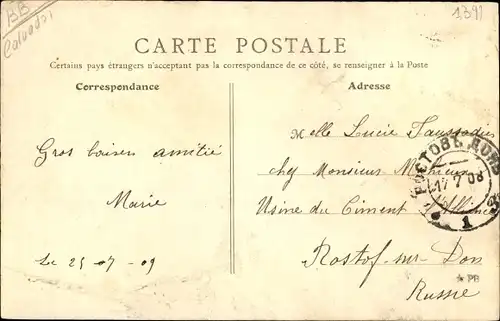 BB
Calvados
1391
CARTE POSTALE
Certains pays étrangers n'acceptant pas la correspondance de ce côté, se renseigner à la Poste
Correspondance
Adresse
Gros baisers amitié
Marie
Le 25-07-09
Melle Lucie
chez Monsieur
Usine du Ciment l'Alliance
Rostof-sur-Don
Russie
РОСТОВЪ ДОНЪ
17 7 08
1
* PB